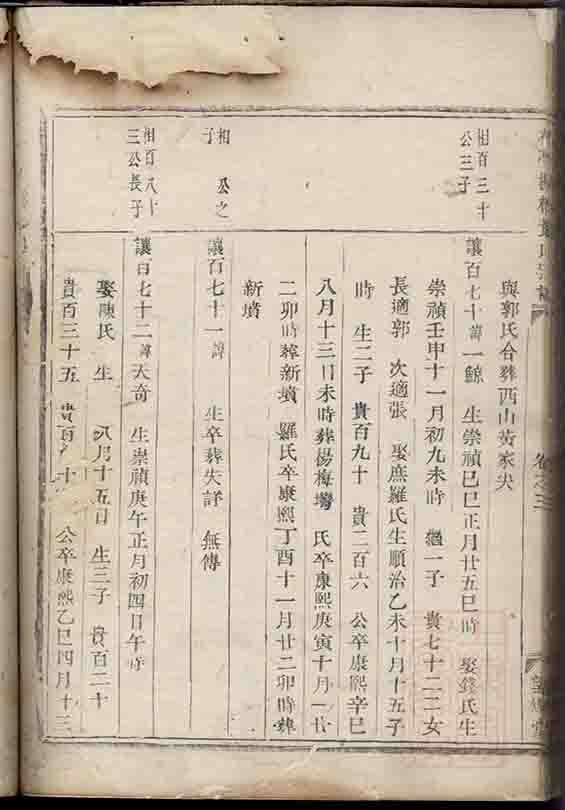 卷之三
與郭氏合葬西山黃家尖
相百三十
公三子
讓百七十諱一鯨 生崇禎己巳正月廿五巳時 娶錢氏生
崇禎壬申十一月初九未時 繼一子 貴七十二二女
長適郭 次適張 娶庶羅氏生順治乙未十月十五子
時 生二子 貴百九十 貴二百六 公卒康熙辛巳
八月十三日未時葬楊梅灣 氏卒康熙庚寅十月一廿
二卯時葬新墳 羅氏卒康熙丁酉十一月廿二卯時葬
新墳
相 公之
子
讓百七十一諱 生卒葬失詳 無傳
相百八十
三公長子
讓百七十二諱天奇 生崇禎庚午正月初四日午時
娶陳氏 生 八月十五日 生三子 貴百二十
貴百三十五 貴百 十 公卒康熙乙巳四月十三